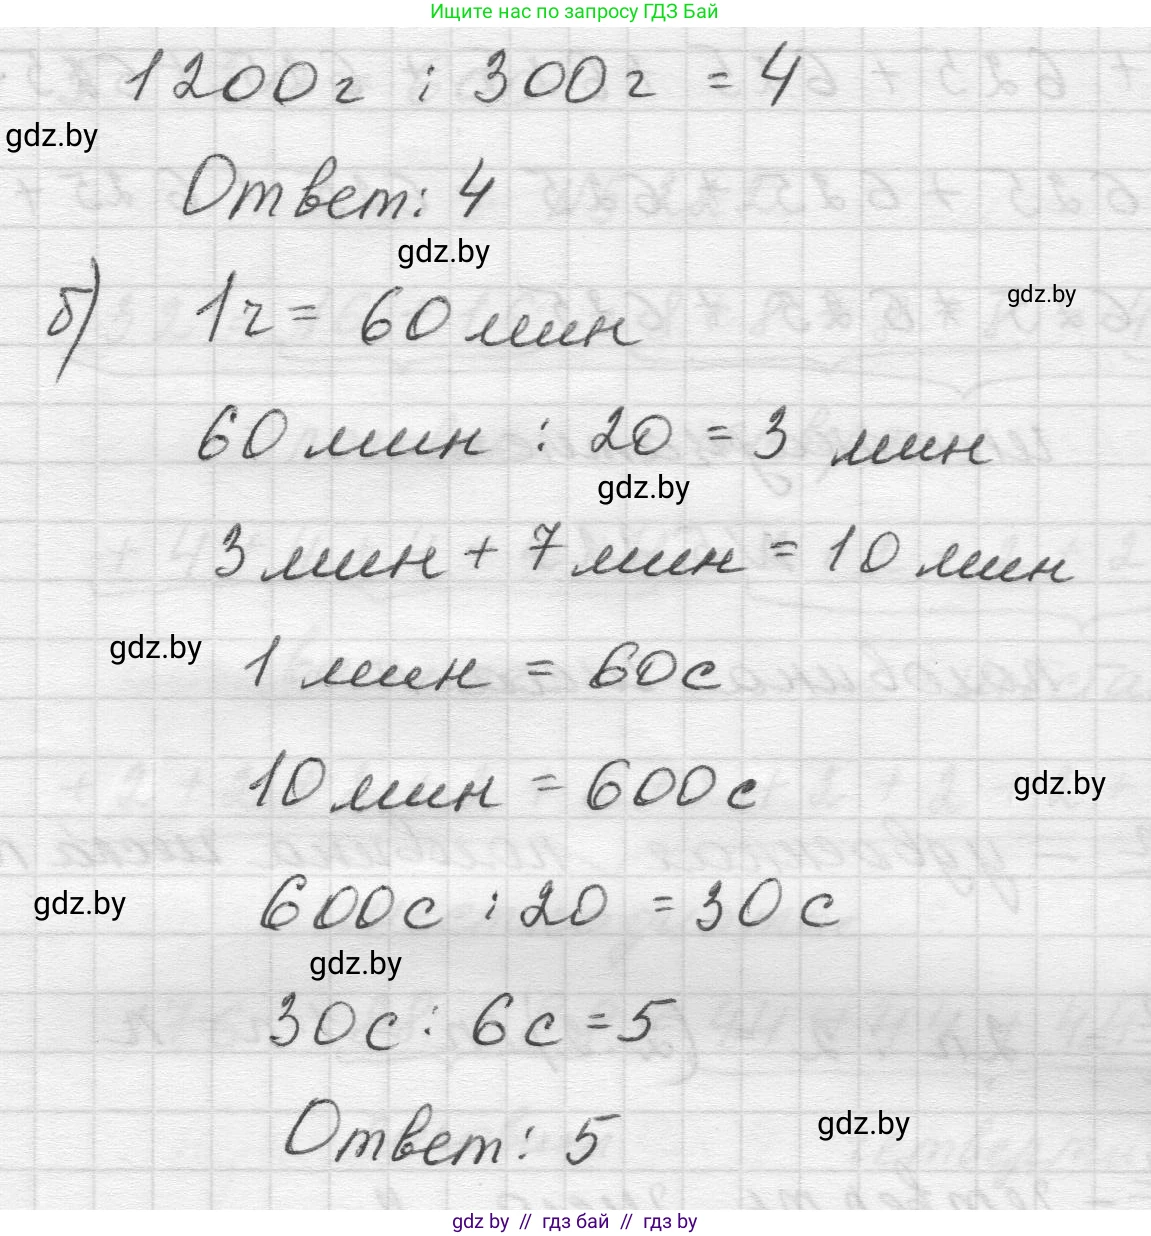 Ищите нас по запросу ГДЗ Бай
1200г : 300г = 4
gdz.by
Ответ: 4
gdz.by
б) 1ч = 60 мин
gdz.by
60 мин : 20 = 3 мин
gdz.by
3 мин + 7 мин = 10 мин
gdz.by
1 мин = 60с
10 мин = 600с
gdz.by
600с : 20 = 30 с
gdz.by
gdz.by
30с : 6с = 5
Ответ: 5
gdz.by
gdz by // гдз бай // гдз by